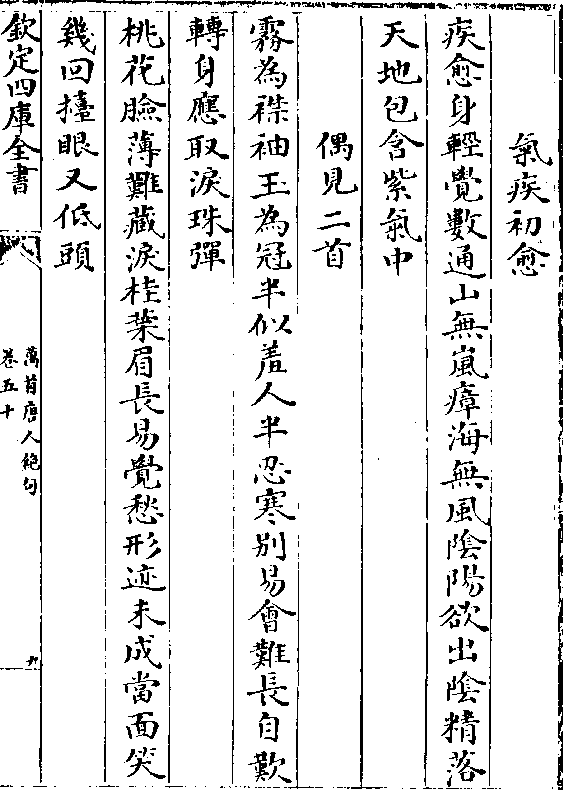 氣疾初愈
疾愈身輕覺數通山無嵐瘴海無風陰陽欲出陰精落
天地包含紫氣中
偶見二首
霧為襟袖玉為冠半似羞人半忍寒別易會難長自歎
轉身應取淚珠彈
桃花臉薄難藏淚桂葉眉長易覺愁形迹未成當面笑
幾回擡眼又低頭
欽定四庫全書
萬首唐人絶句
卷五十
九